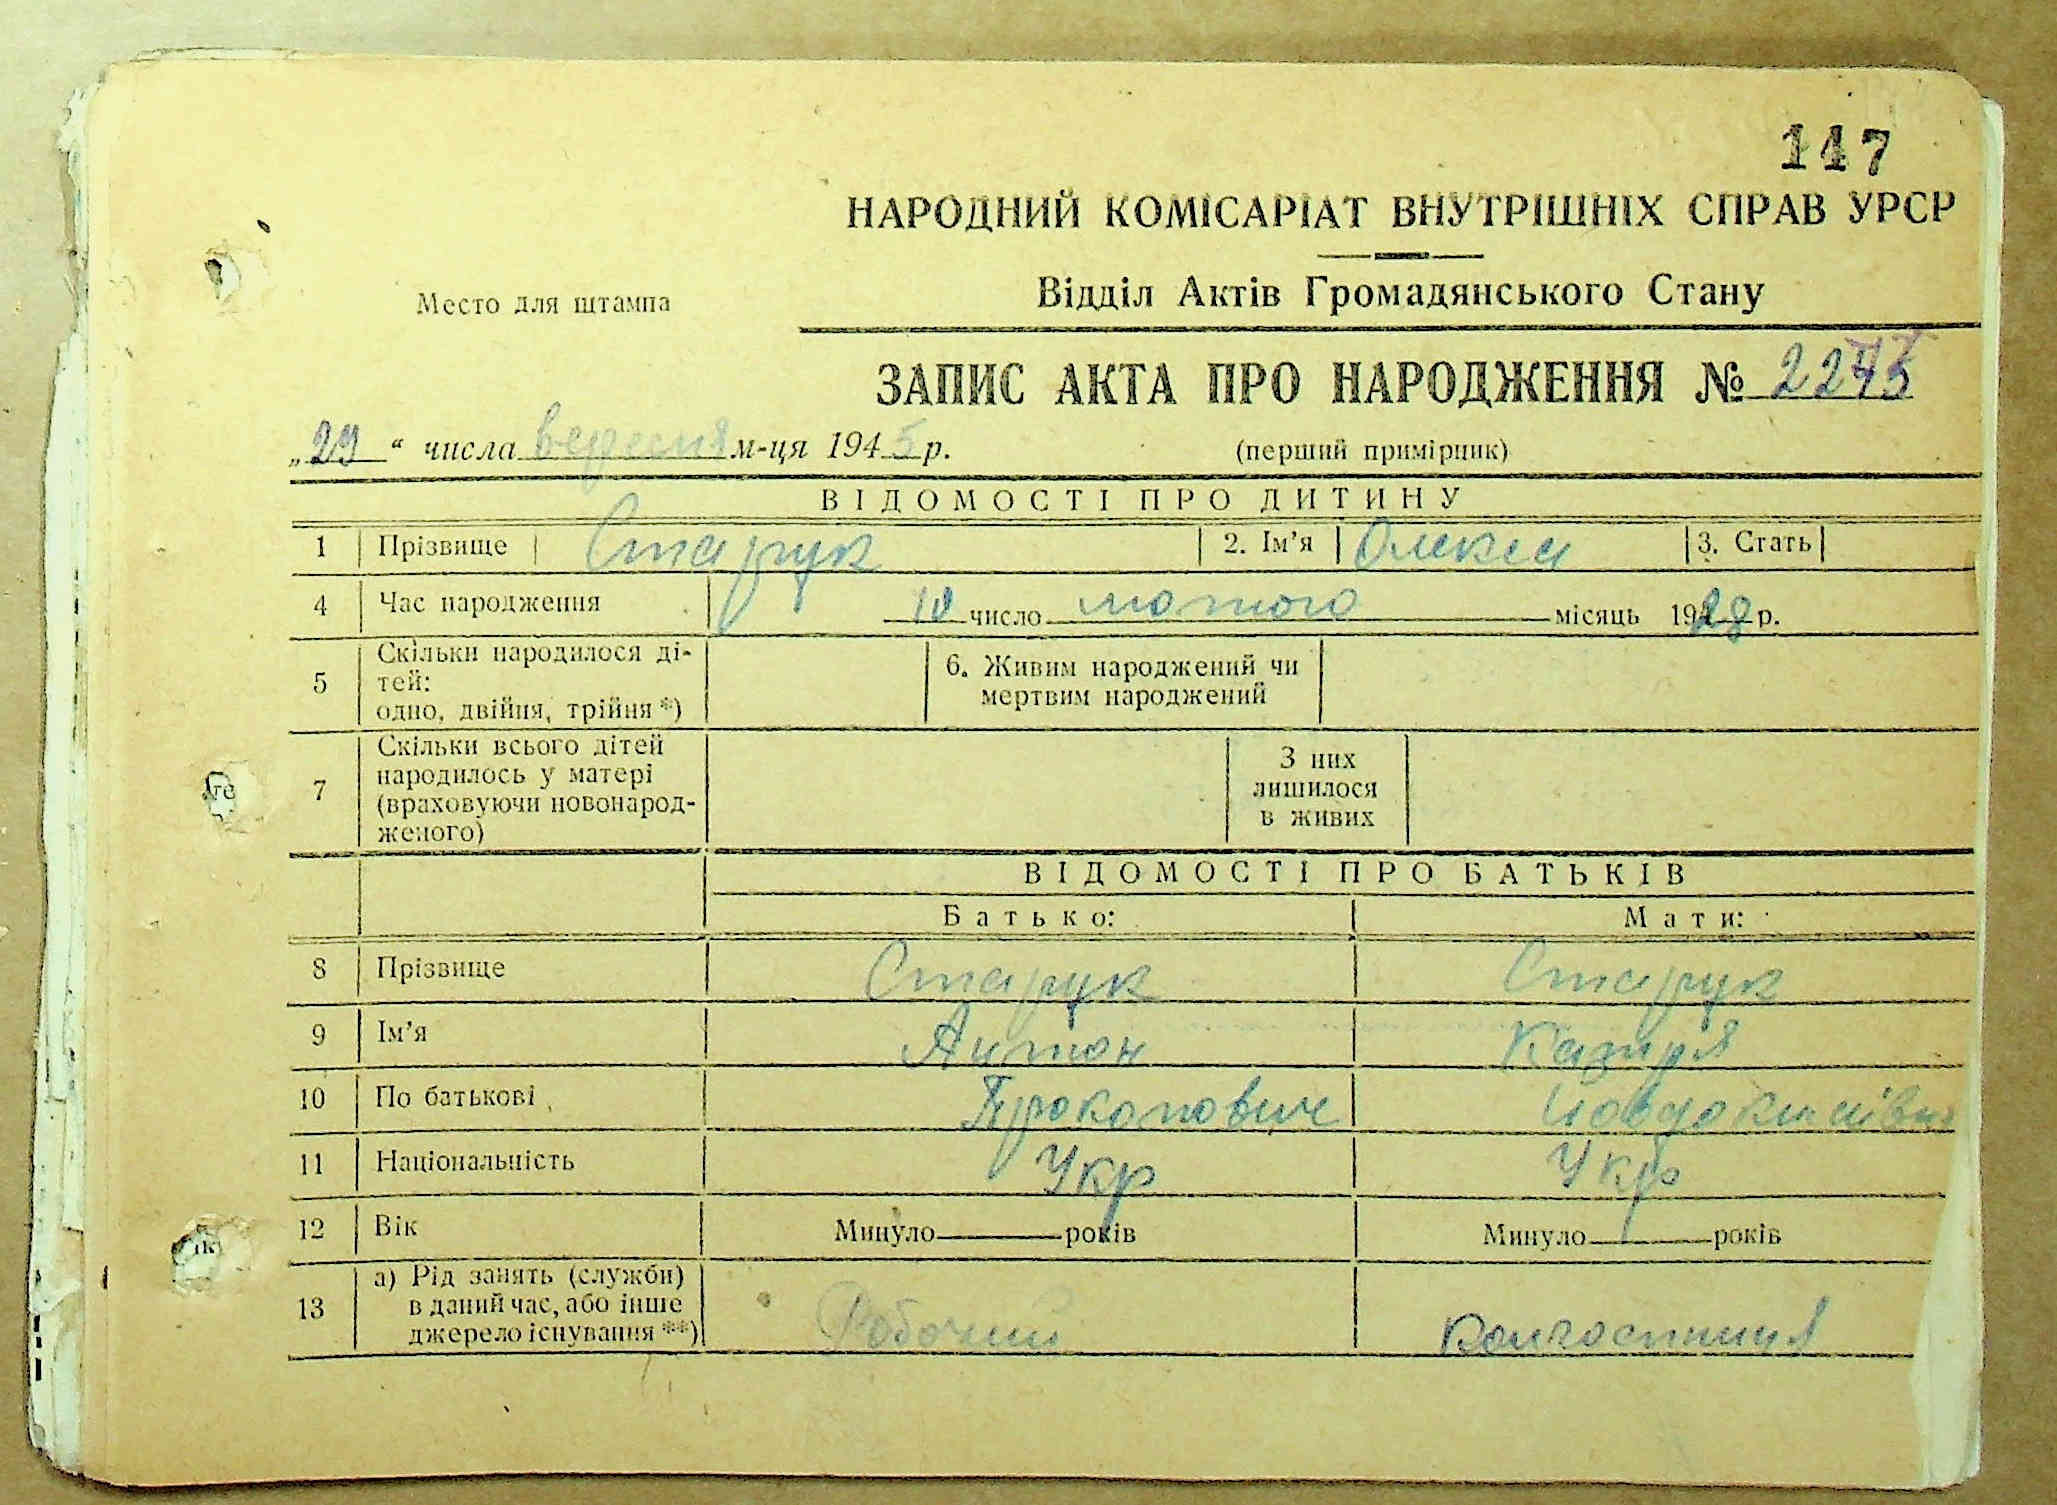 117
НАРОДНИЙ КОМІСАРІАТ ВНУТРІШНІХ СПРАВ УРСР
Место для штампа
Відділ Актів Громадянського Стану
ЗАПИС АКТА ПРО НАРОДЖЕННЯ №
„29“ числа вересня м-ця 1945 р. (перший примірник)
ВІДОМОСТІ ПРО ДИТИНУ
1 Прізвище Старук 2. Ім’я Олекса 3. Стать
4 Час народження 10 число лютого місяць 1928 р.
5 Скільки народилося ді-
тей:
одно, двійня, трійня *)
6. Живим народжений чи
мертвим народжений
7 Скільки всього дітей
народилось у матері
(враховуючи новонарод-
женого)
З них
лишилося
в живих
ВІДОМОСТІ ПРО БАТЬКІВ
Батько: Мати:
8 Прізвище Старук Старук
9 Ім’я Антон Катря
10 По батькові Прокопович
11 Національність Укр Укр
12 Вік Минуло років Минуло років
13 а) Рід занять (служби)
в даний час, або інше
джерело існування **)
Робочий Колгоспниця